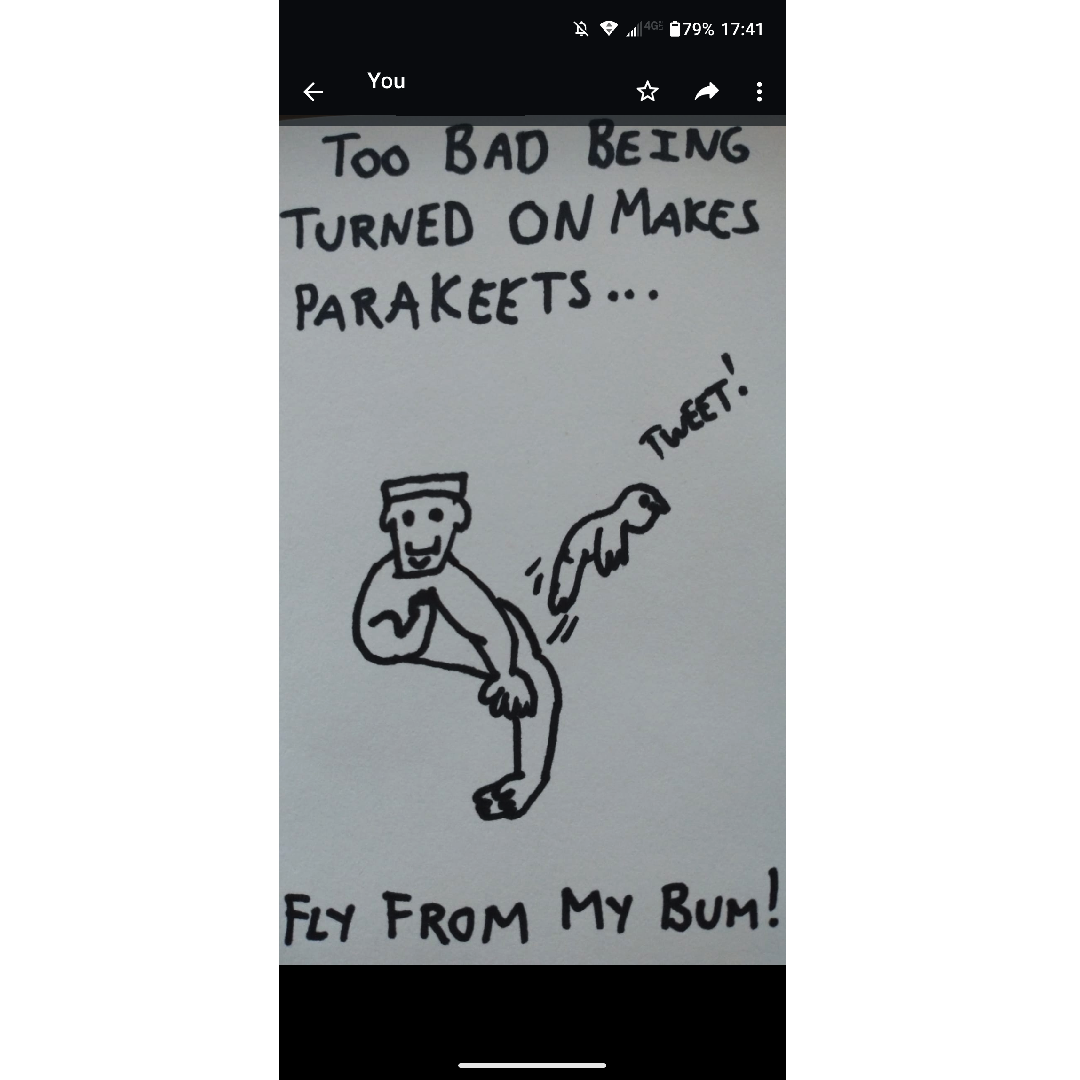 79% 17:41
You
TOO BAD BEING
TURNED ON MAKES
PARAKEETS...
TWEET!
FLY FROM MY BUM!